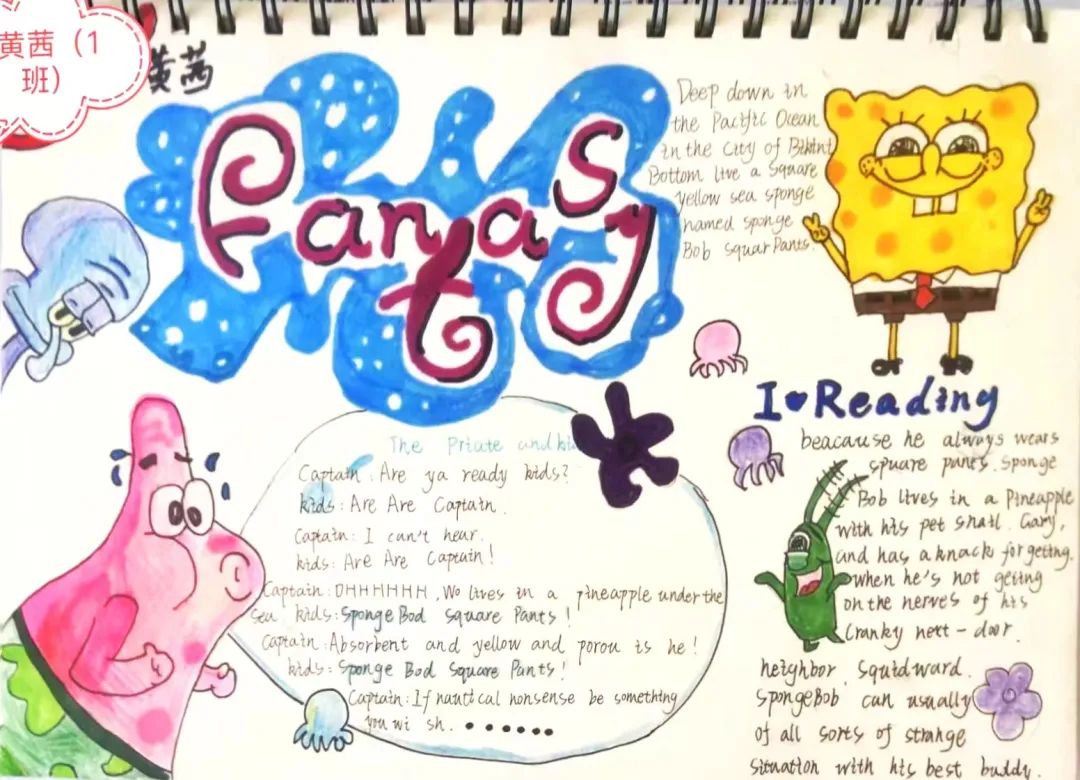 黄茜（1
班）
黄茜
Fantasy
Deep down in
the Pacific Ocean
in the City of Bikini
Bottom live a Square
yellow sea sponge
named sponge
Bob squarPants.
I ♥ Reading
beacause he always wears
spuare pants. Sponge
Bob lives in a Pineapple
with his pet snail. Gary,
and has a knack for geting.
when he's not geting
on the nerves of his
Cranky nett - door.
neighbor. Squidward.
SpongeBob can usually
of all sorts of strange
situation with his best buddy.
The Priate and kid
Captain: Are ya ready kids?
kids: Are Are Captain.
Captain: I can't hear.
kids: Are Are Captain!
Captain: OHHHHHH, Wo lives in a pineapple under the
sea kids: Sponge Bod square Pants!
Captain: Absorbent and yellow and porou is he!
kids: Sponge Bod Square Pants!
Captain: If nautical nonsense be something
you wi sh. ......